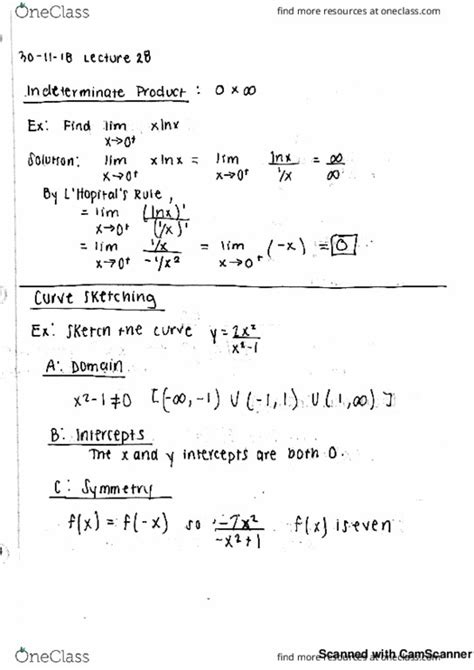 OneClass
find more resources at oneclass.com
30-11-18 Lecture 28
Indeterminate Product : 0 × ∞
Ex: Find lim x→0⁺ xlnx
Solution: lim x→0⁺ xlnx = lim x→0⁺ lnx / 1/x = ∞ / ∞
By L'Hopital's Rule,
= lim x→0⁺ (lnx)' / (1/x)'
= lim x→0⁺ 1/x / -1/x² = lim x→0⁺ (-x) = 0
Curve Sketching
Ex: Sketch the curve y = 2x² / x²-1
A: Domain
x²-1≠0 [(-∞, -1) U (-1, 1) U (1, ∞)]
B: Intercepts
The x and y intercepts are both 0.
C: Symmetry
f(x) = f(-x) so -2x² / -x²+1 f(x) is even
OneClass
find more resources at oneclass.com
Scanned with CamScanner